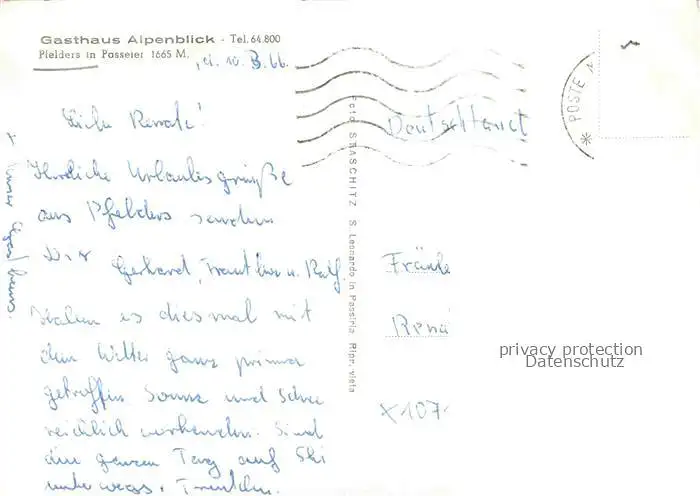 Gasthaus Alpenblick - Tel. 64.800
Pfelders in Passeier 1665 M.
d. 10. 3. 66.
Liebe Renate!
Herzliche Urlaubsgrüße
aus Pfelders senden
Dir
Gerhard, Trautl u. Ralf.
Haben es diesmal mit
dem Wetter ganz prima
getroffen Sonne und Schnee
reichlich vorhanden. Sind
den ganzen Tag auf Ski
unterwegs.
x unser
Foto STASCHITZ S. Leonardo in Passiria Ripr. vieta
POSTE
Deutschland
Fräule
Rena
X107
privacy protection
Datenschutz